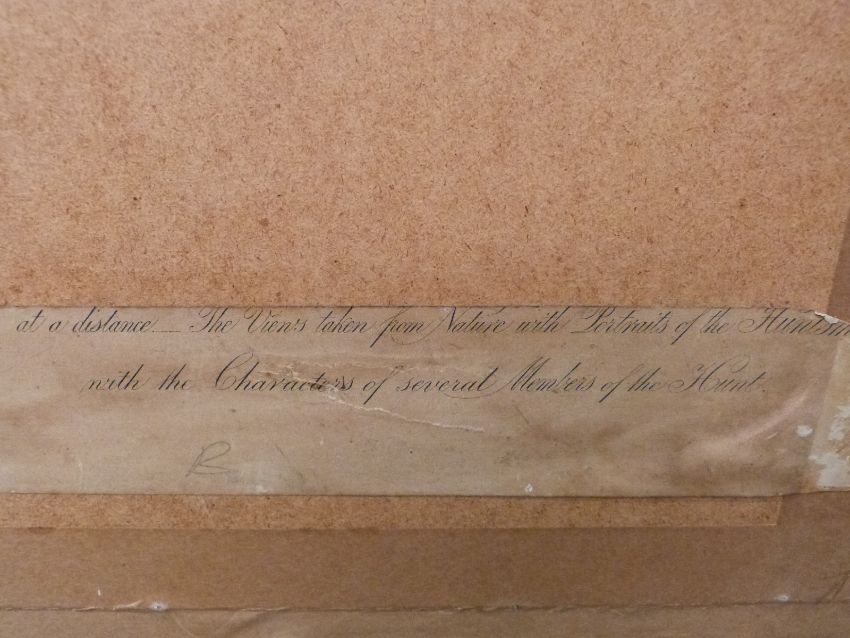 at a distance — The Views taken from Nature with Portraits of the
with the Characters of several Members of the Hunt.
B